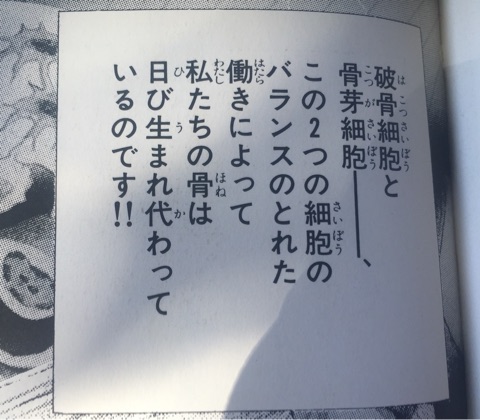 破骨細胞と
骨芽細胞――、
この2つの細胞の
バランスのとれた
働きによって
私たちの骨は
日び生まれ代わって
いるのです!!